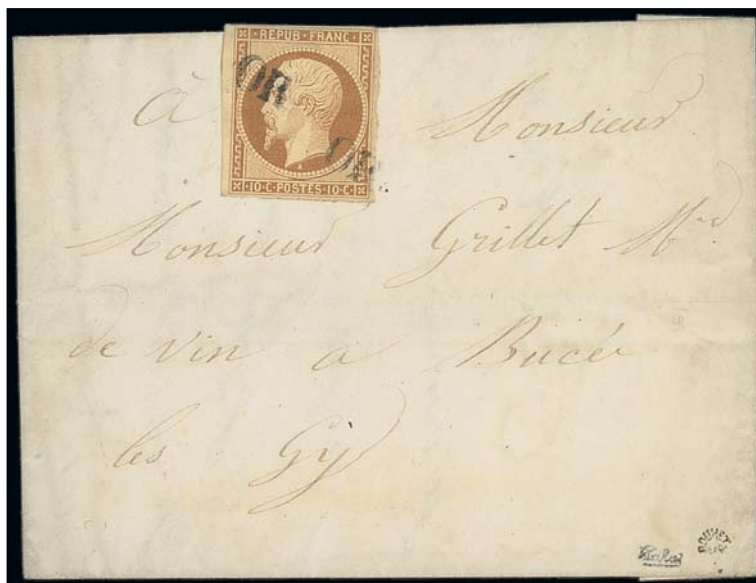 REPUB. FRANC.
OR
OR
10·C·POSTES·10·C
à Monsieur
Monsieur Grillet Md
de vin a Bucé
les Gy